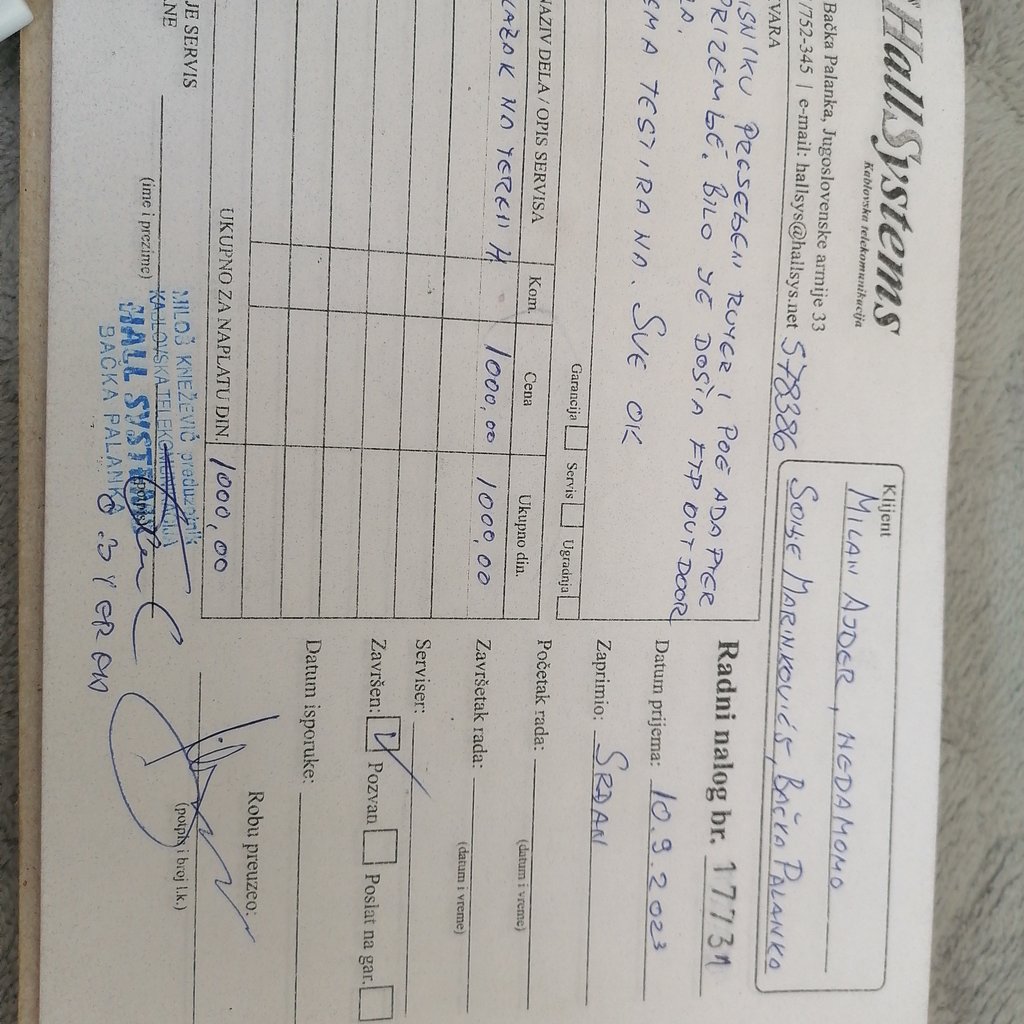 HallSystems
Kablovska telekomunikacija
Bačka Palanka, Jugoslovenske armije 33
/752-345 | e-mail: hallsys@hallsys.net 578386
Klijent
MILAN AJDER, NEDAMOMO
SOHJE MARINKOVIĆ, BAČKA PALANKA
VARA
IŠNIKU PRESEĐEN RUTER I POE ADAPTER
PRIZEMLJE. BILO JE DOSTA FTP OUTDOOR
LA.
EMA TESTIRANA. SVE OK
Garancija Servis Ugradnja
NAZIV DELA / OPIS SERVISA Kom. Cena Ukupno din.
LAZAK NA TEREN 4 1000,00 1000,00
UKUPNO ZA NAPLATU DIN. 1000,00
Radni nalog br. 17731
Datum prijema: 10.9.2023
Zaprimio: SRĐAN
Početak rada:
(datum i vreme)
Završetak rada:
(datum i vreme)
Serviser:
Završen: Pozvan Poslat na gar.
Datum isporuke:
JE SERVIS
NE
(ime i prezime)
MILOŠ KNEŽEVIĆ preduzetnik
KABLOVSKA TELEKOMUNIKACIJA
HALL SYSTEMS
BAČKA PALANKA
(potpis)
Robu preuzeo:
(potpis i broj l.k.)